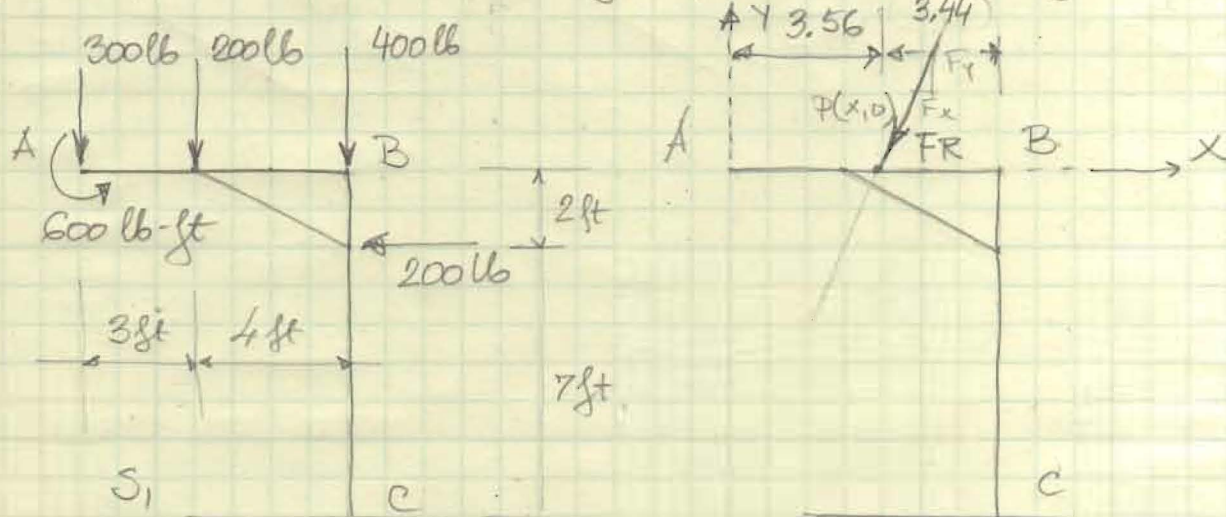 300lb 200lb 400lb
A B
600 lb-ft
2ft
200lb
3ft 4ft
7ft
S₁ C
Y 3.56 3.44
Fy
P(x,0) Fx
A FR B X
C